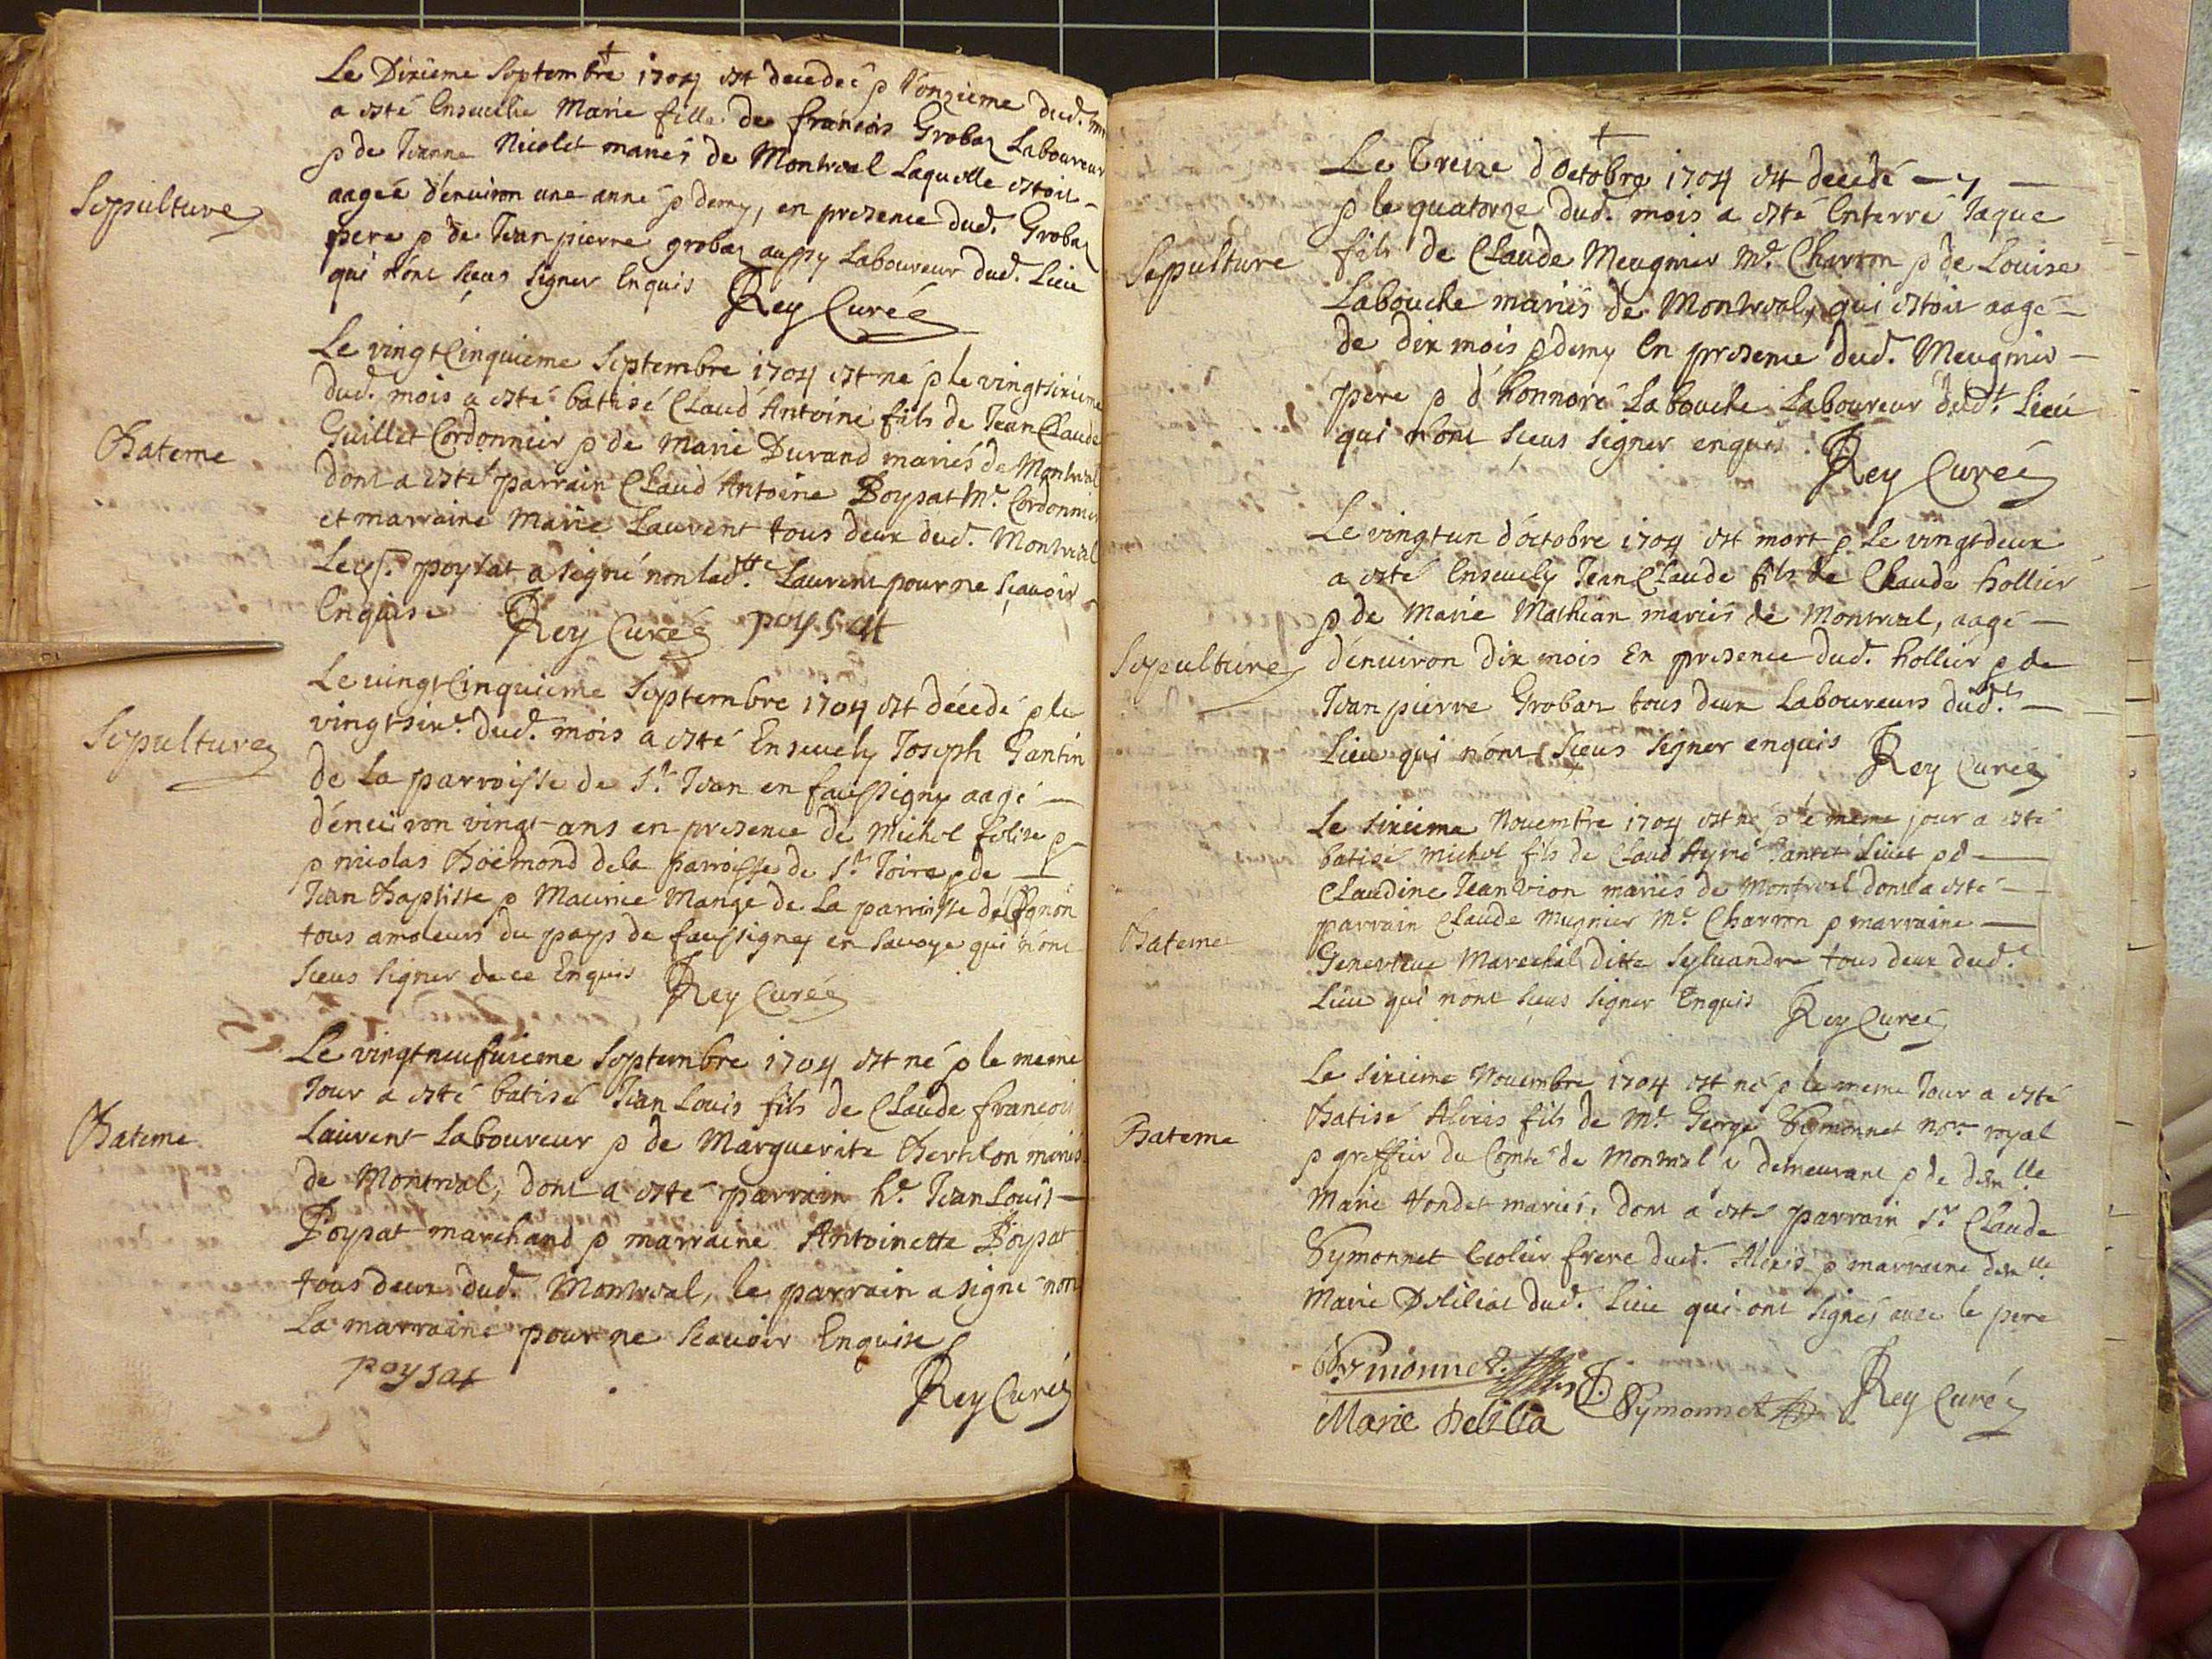 Le Dixieme Septembre 1704 est decedeé & l'onzieme dud. mois
a esté Ensevelie Marie fille de francois Grobaz Laboureur
& de Jeanne Nicolet mariés de Montreal Laquelle estoit
aageé d'environ une anné & demy, en presence dud. Grobaz
Sepulture
pere & de Jean pierre grobaz aussy Laboureur dud. Lieu
qui n'ont sçeus signer Enquis Rey Curé
Le vingt Cinquieme Septembre 1704 est né & le vingt sixieme
dud. mois a esté batisé Claud' Antoine fils de Jean Claude
Bateme
Guillet Cordonnier & de Marie Durand mariés de Montreal
dont a esté parrain Claud' Antoine Poysat Me. Cordonnier
et marraine Marie Laurent tous deux dud. Montreal
Led. poysat a signé non lad.tte Laurent pour ne sçavoir
Enquise Rey Curé poysat
Le vingt Cinquieme Septembre 1704 est décedé & le
vingt sixe. dud. mois a esté Ensevely Joseph Gantin
Sepulture
de La parroisse de St. Jean en faussigny aagé
d'environ vingt ans en presence de Michel felise &
& nicolas Boëmond de la parroisse de St. Joire & de
Jean Baptiste & Maurice Mange de La parroisse
tous amoleurs du pays de faussigny en Savoye qui n'ont
sçeus signer de ce Enquis Rey Curé
Le vingt neufvieme Septembre 1704 est né & le meme
Jour a esté batisé Jean Louis fils de Claude francois
Bateme
Laurent Laboureur & de Marguerite Bertelon mariés
de Montreal, dont a esté parrain he. Jean Louis
Poysat marchand & marraine Antoinette Poysat
tous deux dud. Montreal, le parrain a signé non
La marraine pour ne sçavoir Enquise
poysat
Rey Curé
Le Treize d'Octobre 1704 est decedé
& le quatorze dud. mois a esté Enterré Jaque
Sepulture
fils de Claude Meugnier Me. Charron & de Louise
Labouche mariés de Montreal, qui estoit aagé
de dix mois & demy En presence dud. Meugnier
pere & d'honnoré Labouche Laboureur dudt. Lieu
qui n'ont sçeus signer enquis Rey Curé
Le vingt un d'octobre 1704 est mort & Le vingt deux
a esté Ensevely Jean Claude fils de Claude hollier
& de Marie Mathian mariés de Montreal, aagé
Sepulture
d'environ dix mois En presence dud. hollier & de
Jean pierre Grobaz tous deux Laboureurs dudt.
Lieu qui n'ont sçeus signer enquis Rey Curé
Le sixieme Novembre 1704 est né & le meme jour a esté
batisé Michel fils de Claud Aymé Livet & d
Claudine Jean Vion mariés de Montreal dont a esté
Bateme
parrain Claude Mugnier Me Charron & marraine
Genevieve Marechal Ditte Sylvandre tous deux dud.
Lieu qui n'ont sçeus signer Enquis Rey Curé
Le sixieme Novembre 1704 est né & le meme Jour a esté
Bateme
Batisé Alexis fils de Me. George Symonnet nore. royal
& greffier du Comté de Montreal y demeurant & de demlle
Marie Tondet mariés, dont a esté parrain Sr. Claude
Symonnet Ecolier frere dud. Alexis & marraine demlle
Marie Delilia dud. Lieu qui ont signés avec le pere
Symonnet
Marie Delilia Symonnet Rey Curé